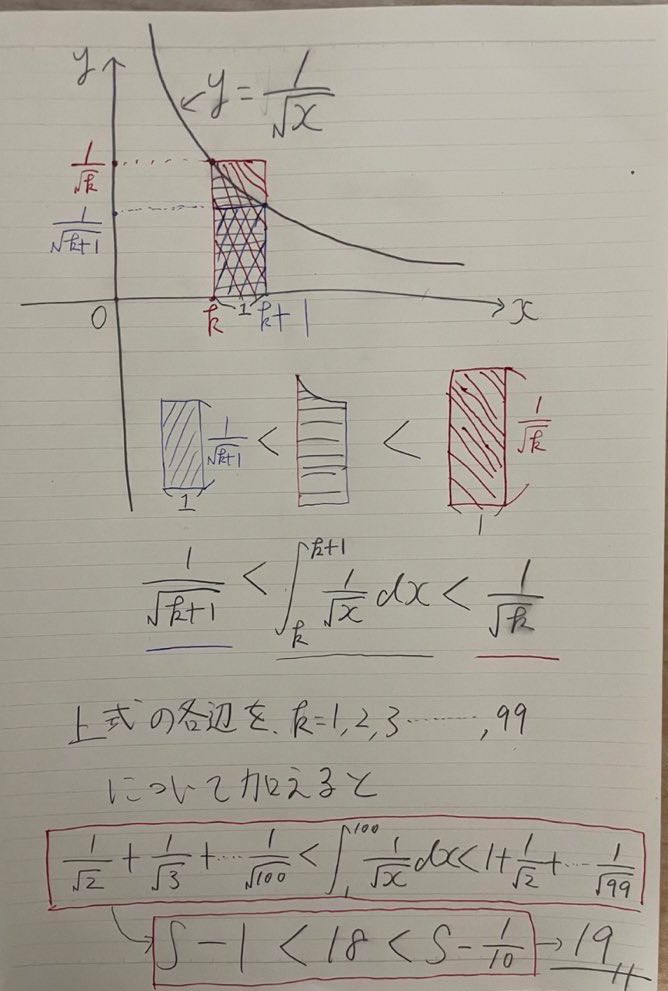 y
y = 1/√x
1/√k
1/√(k+1)
0 k 1 k+1 x
1/√(k+1) < < 1/√k
1 1
1/√(k+1) < ∫_k^{k+1} 1/√x dx < 1/√k
上式の各辺を、k=1,2,3……,99
について加えると
1/√2 + 1/√3 + … 1/√100 < ∫_1^{100} 1/√x dx < 1 + 1/√2 + … 1/√99
S - 1 < 18 < S - 1/10 → 19